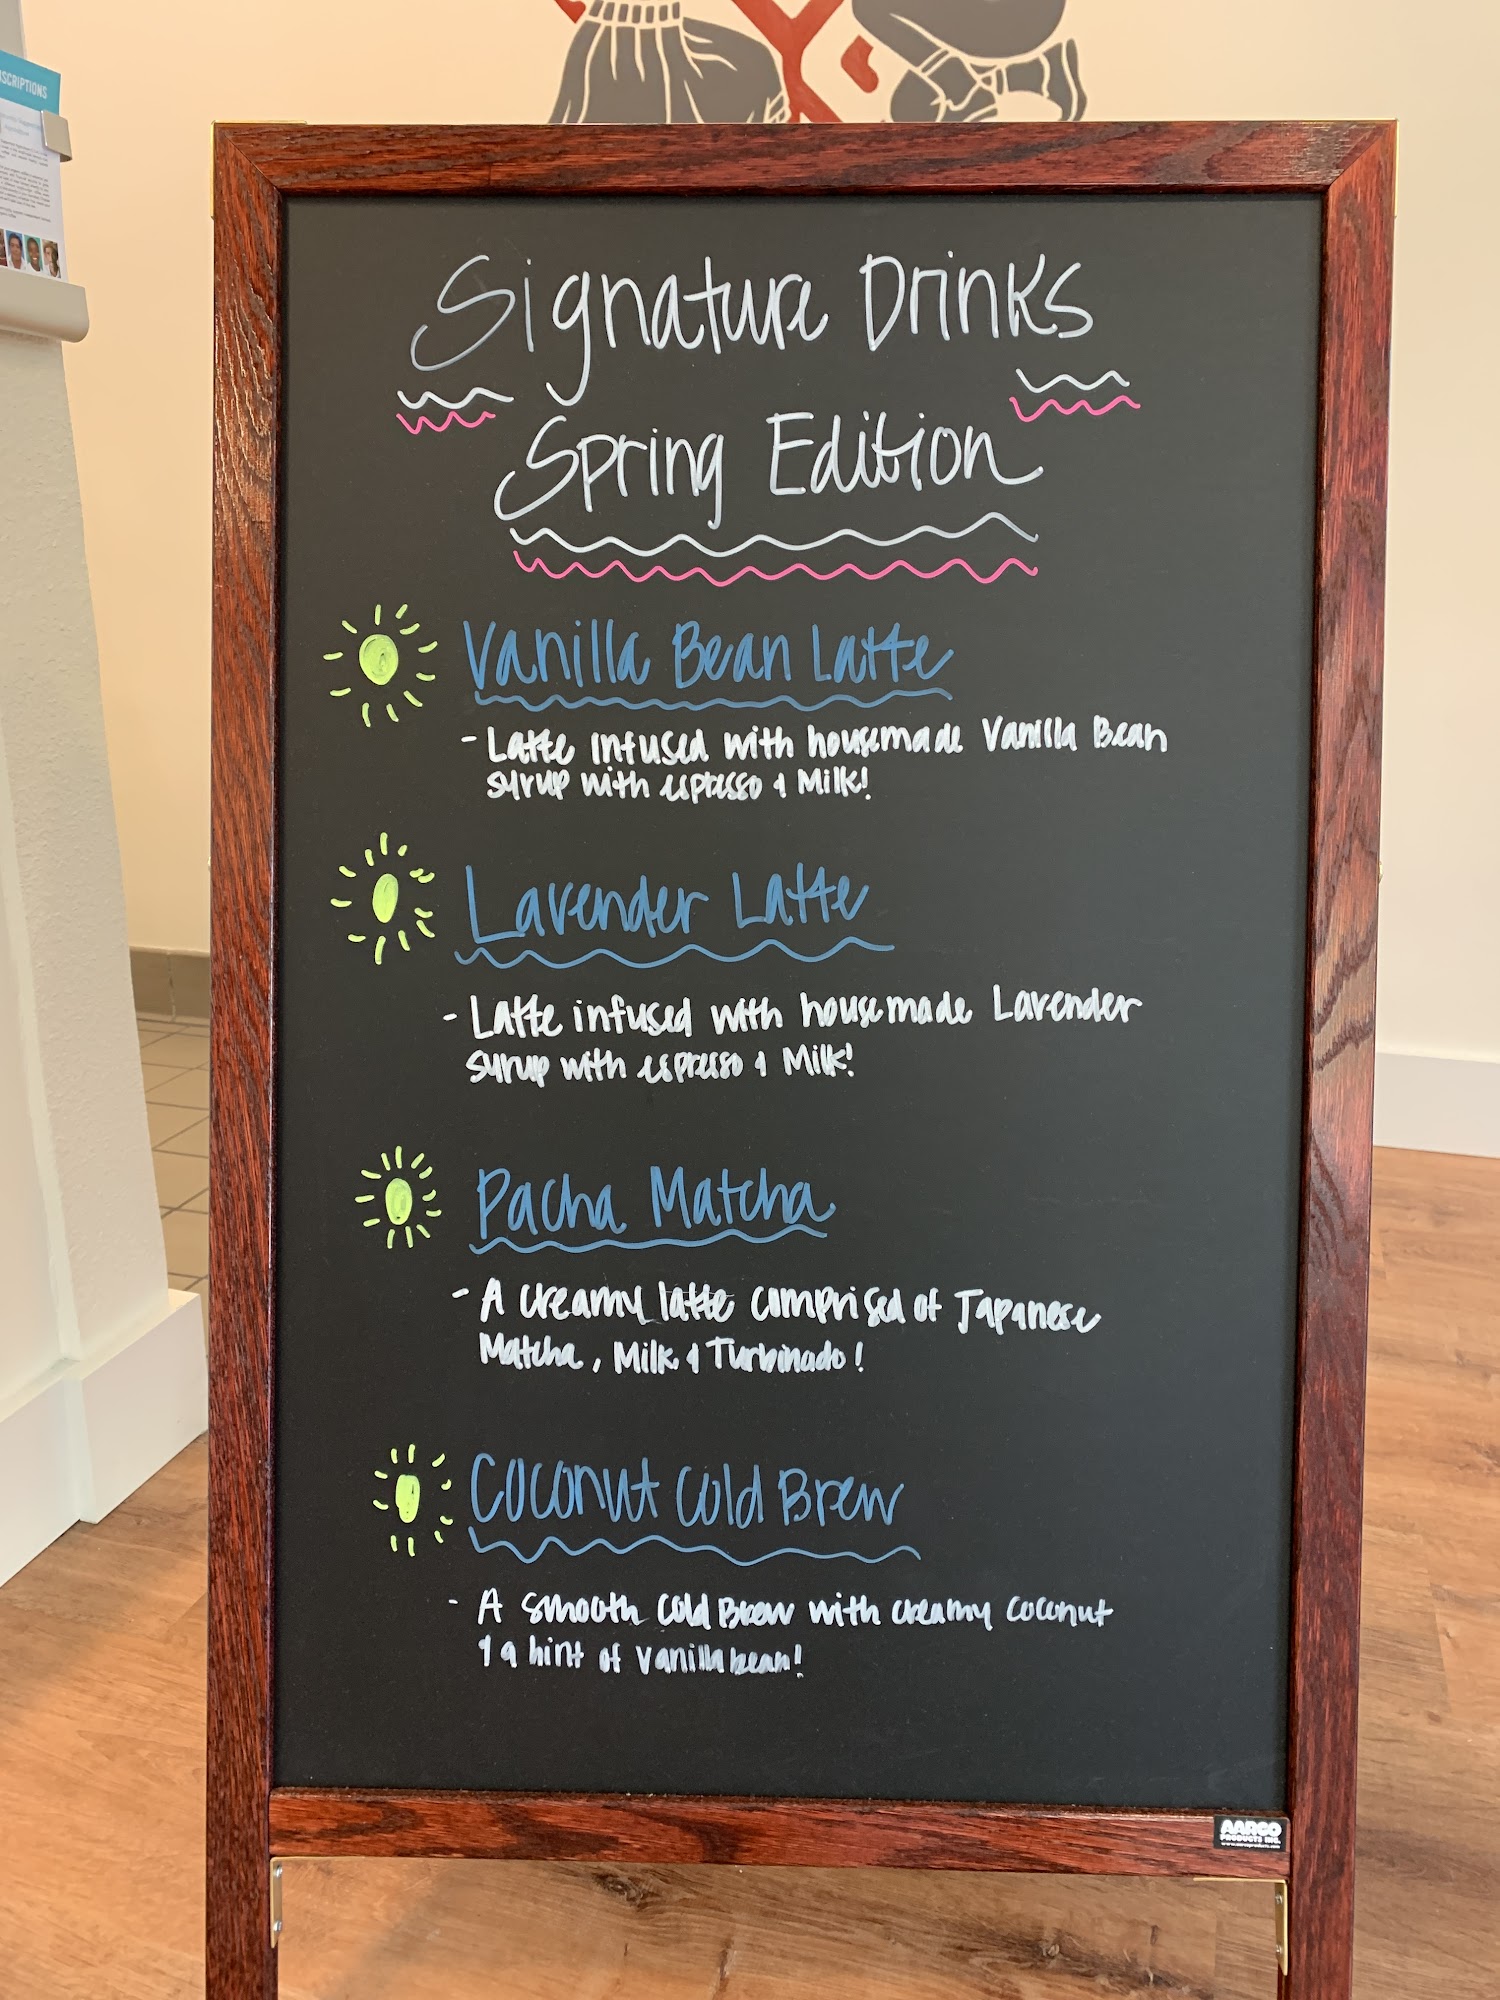 SCRIPTIONS
Signature Drinks
Spring Edition
Vanilla Bean Latte
- Latte infused with housemade Vanilla Bean
syrup with espresso & Milk!
Lavender Latte
- Latte infused with housemade Lavender
syrup with espresso & Milk!
Pacha Matcha
- A creamy latte comprised of Japanese
Matcha, Milk & Turbinado!
Coconut Cold Brew
- A smooth cold Brew with creamy coconut
& a hint of vanilla bean!
AARCO
PRODUCTS INC.